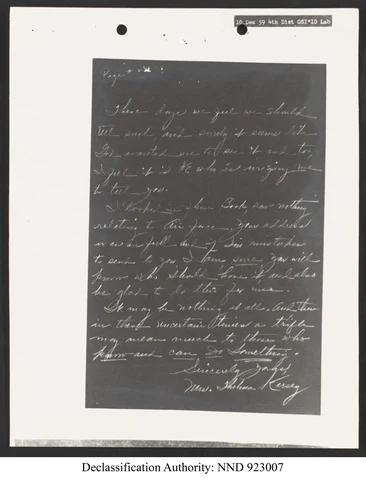 10 Dec 59 4th Dist OSI*IG Lab
Page
These days we feel we should
tell such and surely it seems like
God wanted me to see it and too,
I feel it is He who is urging me
to tell you.
I looked in phone Book saw nothing
relating to Air force. Your address
was in full and if I'm mistaken
to send to you I am sure you will
know who should have it and also
be glad to do this for me.
It may be nothing at all. And then
in these uncertain times a trifle
may mean much to those who
know and can do Something.
Sincerely yours
Mrs. Thelma Kersey
Declassification Authority: NND 923007